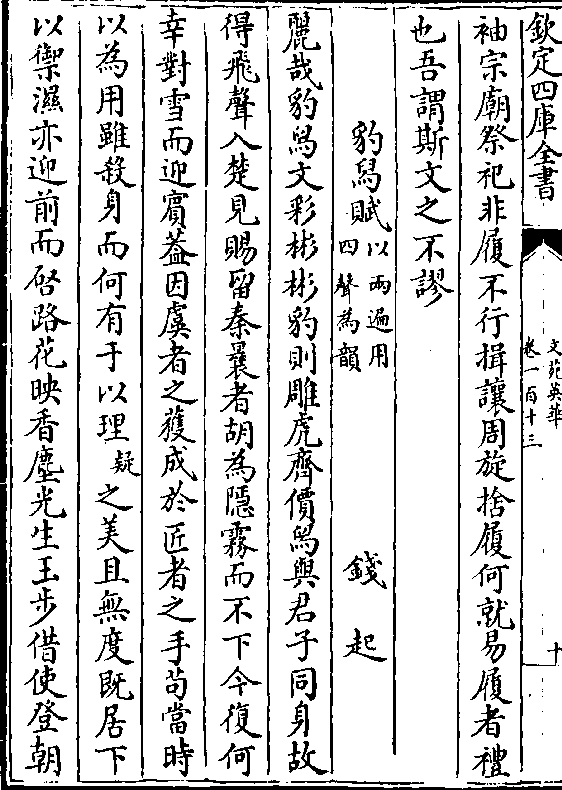 欽定四庫全書
文苑英華
卷一百十三
十
袖宗廟祭祀非履不行揖讓周旋捨履何就易履者禮
也吾謂斯文之不謬
豹舄賦以兩遍用四聲為韻
錢起
麗哉豹舄文彩彬彬豹則雕虎齊價舄與君子同身故
得飛聲入楚見賜留秦曩者胡為隱霧而不下今復何
幸對雪而迎賓蓋因虞者之獲成於匠者之手苟當時
以為用雖殺身而何有于以理疑之美且無度既居下
以禦濕亦迎前而啓路花映香塵光生玉步借使登朝